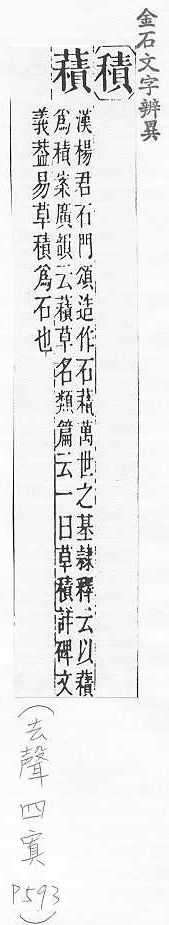 金石文字辨異
積
䕪
漢楊君石門頌造作石䕪萬世之基隸釋云以䕪
為積案廣韻云䕪草名類篇云一曰草積詳碑文
義葢易草積為石也
(去聲四寘
P.593)